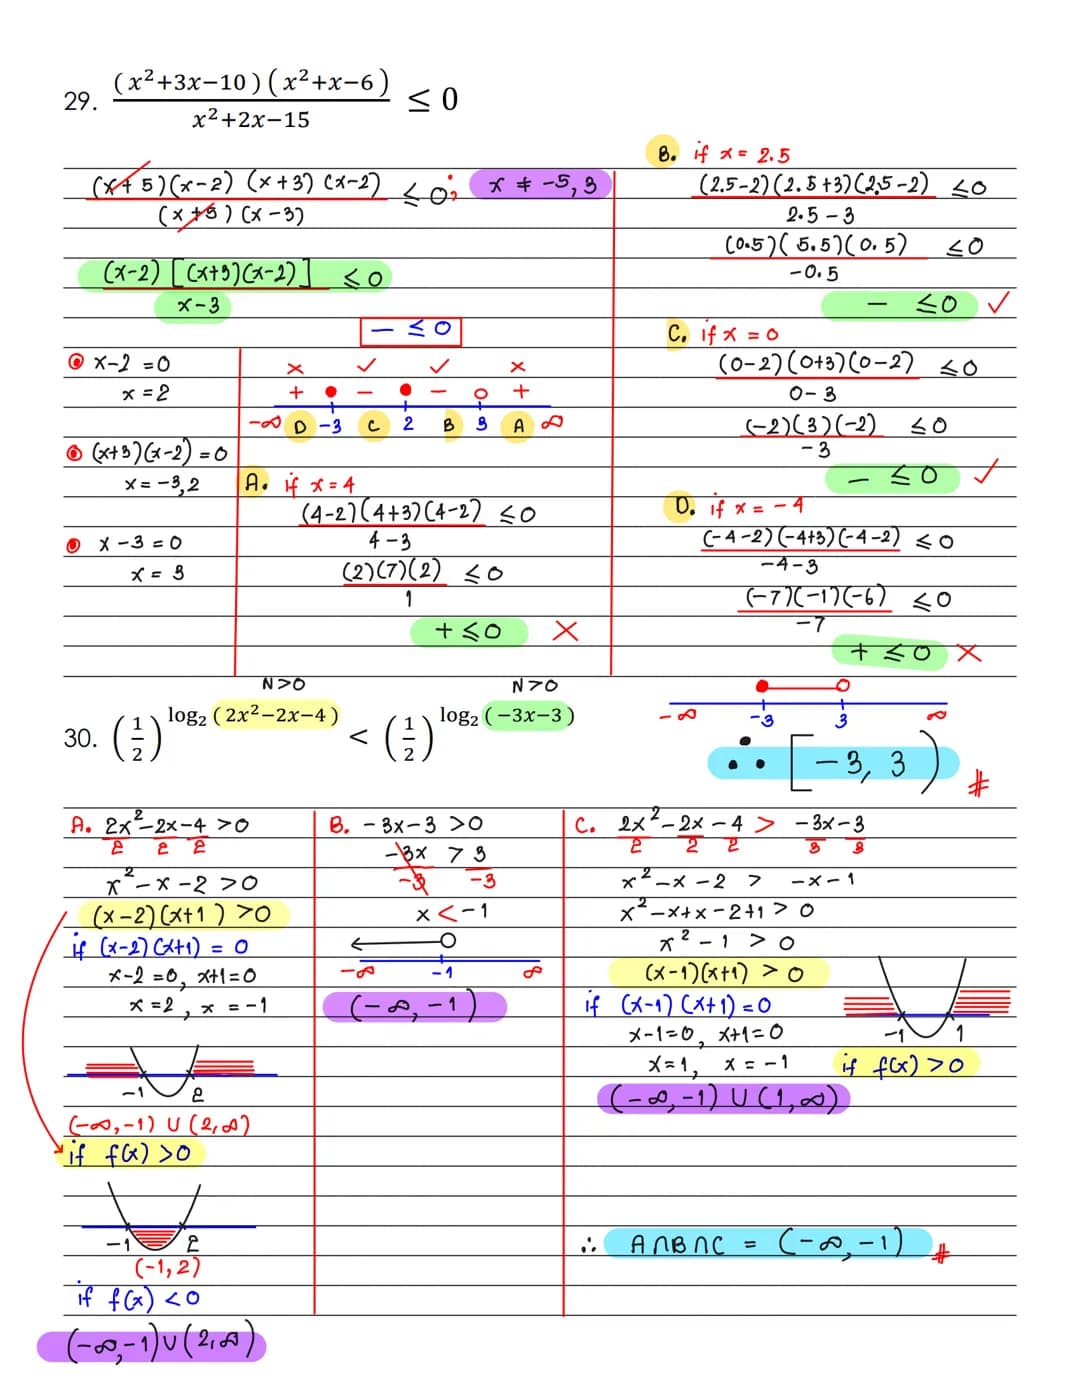 29. (x²+3x−10)(x²+x−6) / x²+2x−15 ≤ 0
(x+5)(x-2)(x+3)(x-2) / (x+5)(x-3) ≤ 0; x ≠ -5, 3
(x-2)[(x+3)(x-2)] / x-3 ≤ 0
− ≤ 0
x-2 = 0
x = 2
(x+3)(x-2) = 0
x = -3, 2
x - 3 = 0
x = 3
× ✓ ✓ ×
+ − − +
-∞ D -3 C 2 B 3 A ∞
A. if x = 4
(4-2)(4+3)(4-2) / 4-3 ≤ 0
(2)(7)(2) / 1 ≤ 0
+ ≤ 0 ×
B. if x = 2.5
(2.5-2)(2.5+3)(2.5-2) / 2.5-3 ≤ 0
(0.5)(5.5)(0.5) / -0.5 ≤ 0
− ≤ 0 ✓
C. if x = 0
(0-2)(0+3)(0-2) / 0-3 ≤ 0
(-2)(3)(-2) / -3 ≤ 0
− ≤ 0 ✓
D. if x = -4
(-4-2)(-4+3)(-4-2) / -4-3 ≤ 0
(-7)(-1)(-6) / -7 ≤ 0
+ ≤ 0 ×
-∞ -3 3 ∞
∴ [-3, 3) #
N>0 N>0
30. (1/2)^log₂(2x²−2x−4) < (1/2)^log₂(−3x−3)
A. 2x²-2x-4 > 0
2 2 2
x²-x-2 > 0
(x-2)(x+1) > 0
if (x-2)(x+1) = 0
x-2 = 0, x+1 = 0
x = 2, x = -1
-1 2
(-∞,-1) ∪ (2,∞)
if f(x) > 0
-1 2
(-1,2)
if f(x) < 0
(-∞,-1)∪(2,∞)
B. -3x-3 > 0
-3x > 3
-3 -3
x < -1
-∞ -1 ∞
(-∞, -1)
C. 2x²-2x-4 > -3x-3
2 2 2 3 3
x²-x-2 > -x-1
x²-x+x-2+1 > 0
x²-1 > 0
(x-1)(x+1) > 0
if (x-1)(x+1) = 0
x-1=0, x+1=0
x=1, x = -1
-1 1
if f(x) > 0
(-∞,-1) ∪ (1,∞)
∴ A∩B∩C = (-∞,-1) #